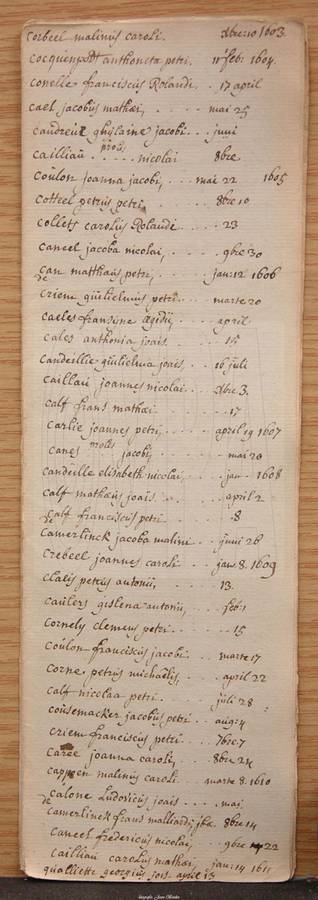 corbeel malinus caroli. xbre 10 1603.
cocquenpot anthoneta petri. 11 feb: 1604.
conelle franciscus Rolandi. 17 april
cael jacobus mathæi, mai 25
caudreux ghislaine jacobi. juni
cailliau prolis nicolai 8bre
coulon joanna jacobi, mai 22 1605
cotteel petrus petri 8bre 10
collets carolus Rolandi 23
caneel jacoba nicolai, 9bre 30
can matthæus petri, jan: 12 1606
criem guilielmus petri. marte 20
caeles fransyne ægidij, april
cales anthonia joais. 15
candeillie guilielma joais. 16 juli
caillau joannes nicolai. xbre 3.
calf frans mathæi 17
carlie joannes petri, april 19 1607
canes prolis jacobi, mai 20
candeille elisabeth nicolai, jan 1608
calf mathæus joais. april 2
de calf franciscus petri 8
camerlinck jacoba malini juni 26
crebeel joannes caroli jan: 8. 1609
claijs petrus antonii, 13.
caulers gislena antonii, feb: 1
cornely clemens petri. 15
coulon franciscus jacobi marte 17
corne petrus michaelis, april 22
calf nicolaa petri. juli 28
cousemacker jacobus petri aug: 4
criem franciscus petri. 7bre 7
caree joanna caroli, 8bre 24
cappen malinus caroli marte 8. 1610
de calone Ludovicus joais mai
camerlinck frans malliardij 8bre 14
caneel fredericus nicolai, 9bre 22
cailliau carolus mathæi, jan: 14 1611
qualliette georgius jos. april 13